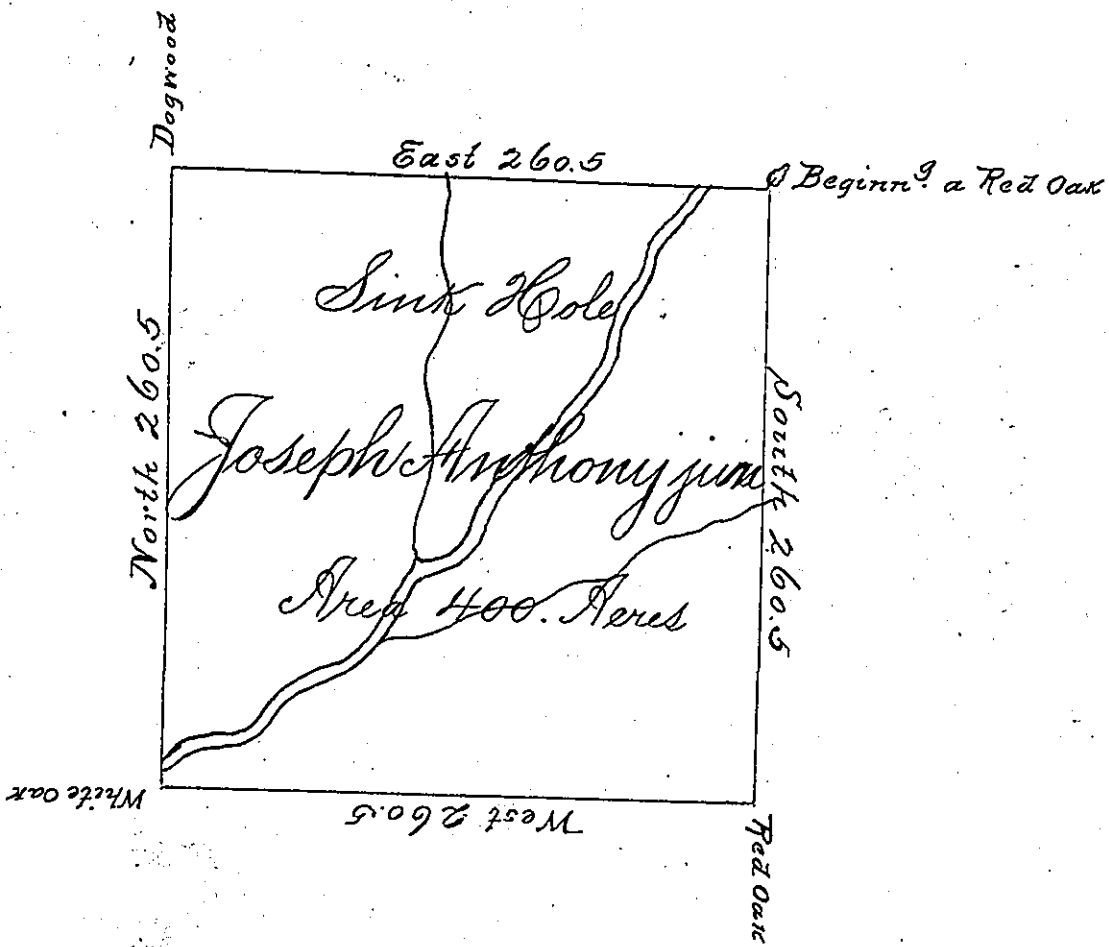 Dogwood
East 260.5
Beginn.g a Red Oak
Sink Hole
North 260.5
South 260.5
Joseph Anthony junr
Area 400. Acres
White Oak
West 260.5
Red Oak